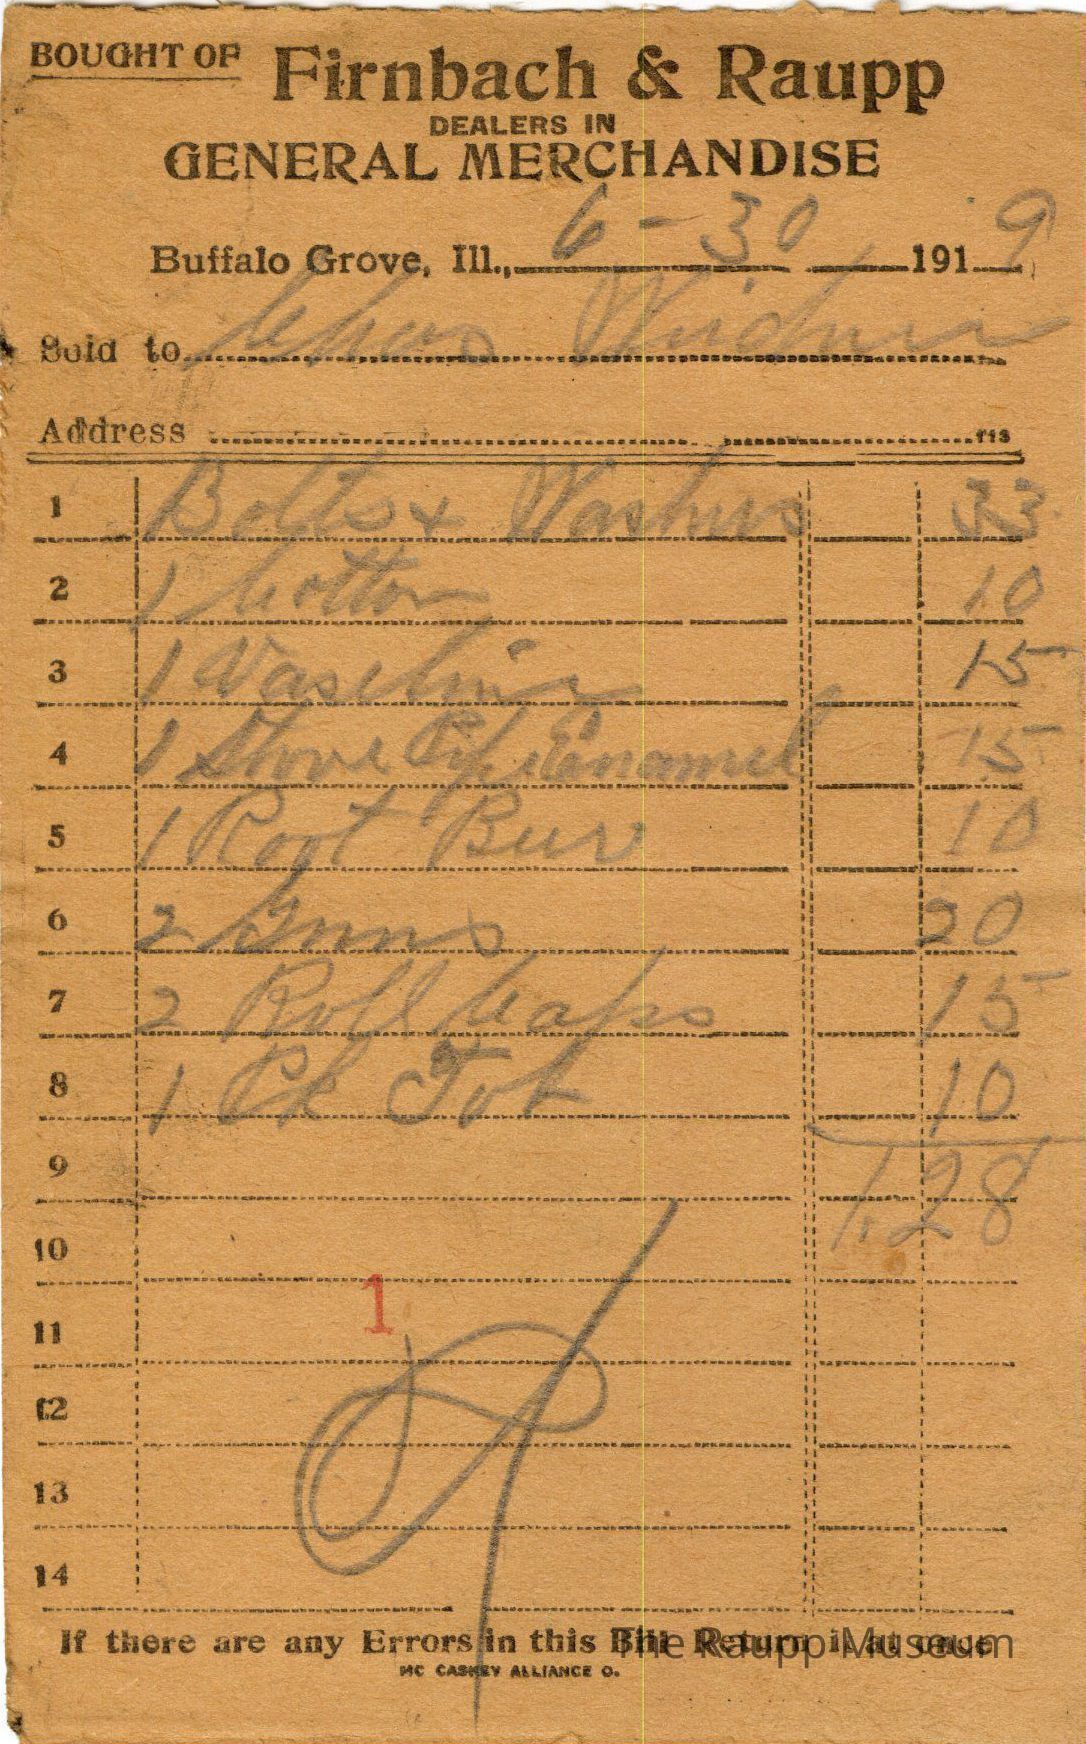 BOUGHT OF Firnbach & Raupp
DEALERS IN
GENERAL MERCHANDISE
Buffalo Grove, Ill., 6-30 1919
Sold to Chas
Address 113
1 Bolts & Washers 33
2 1 Cotton 10
3 1 Vaseline 15
4 1 Stove Pipe Enamel 15
5 1 Root Beer 10
6 2 20
7 2 Roll Caps 15
8 1 Pk Tob 10
9 1.28
10
1
11
12
13
14
If there are any Errors in this Bill Return it at once
The Raupp Museum
MC CASKEY ALLIANCE O.